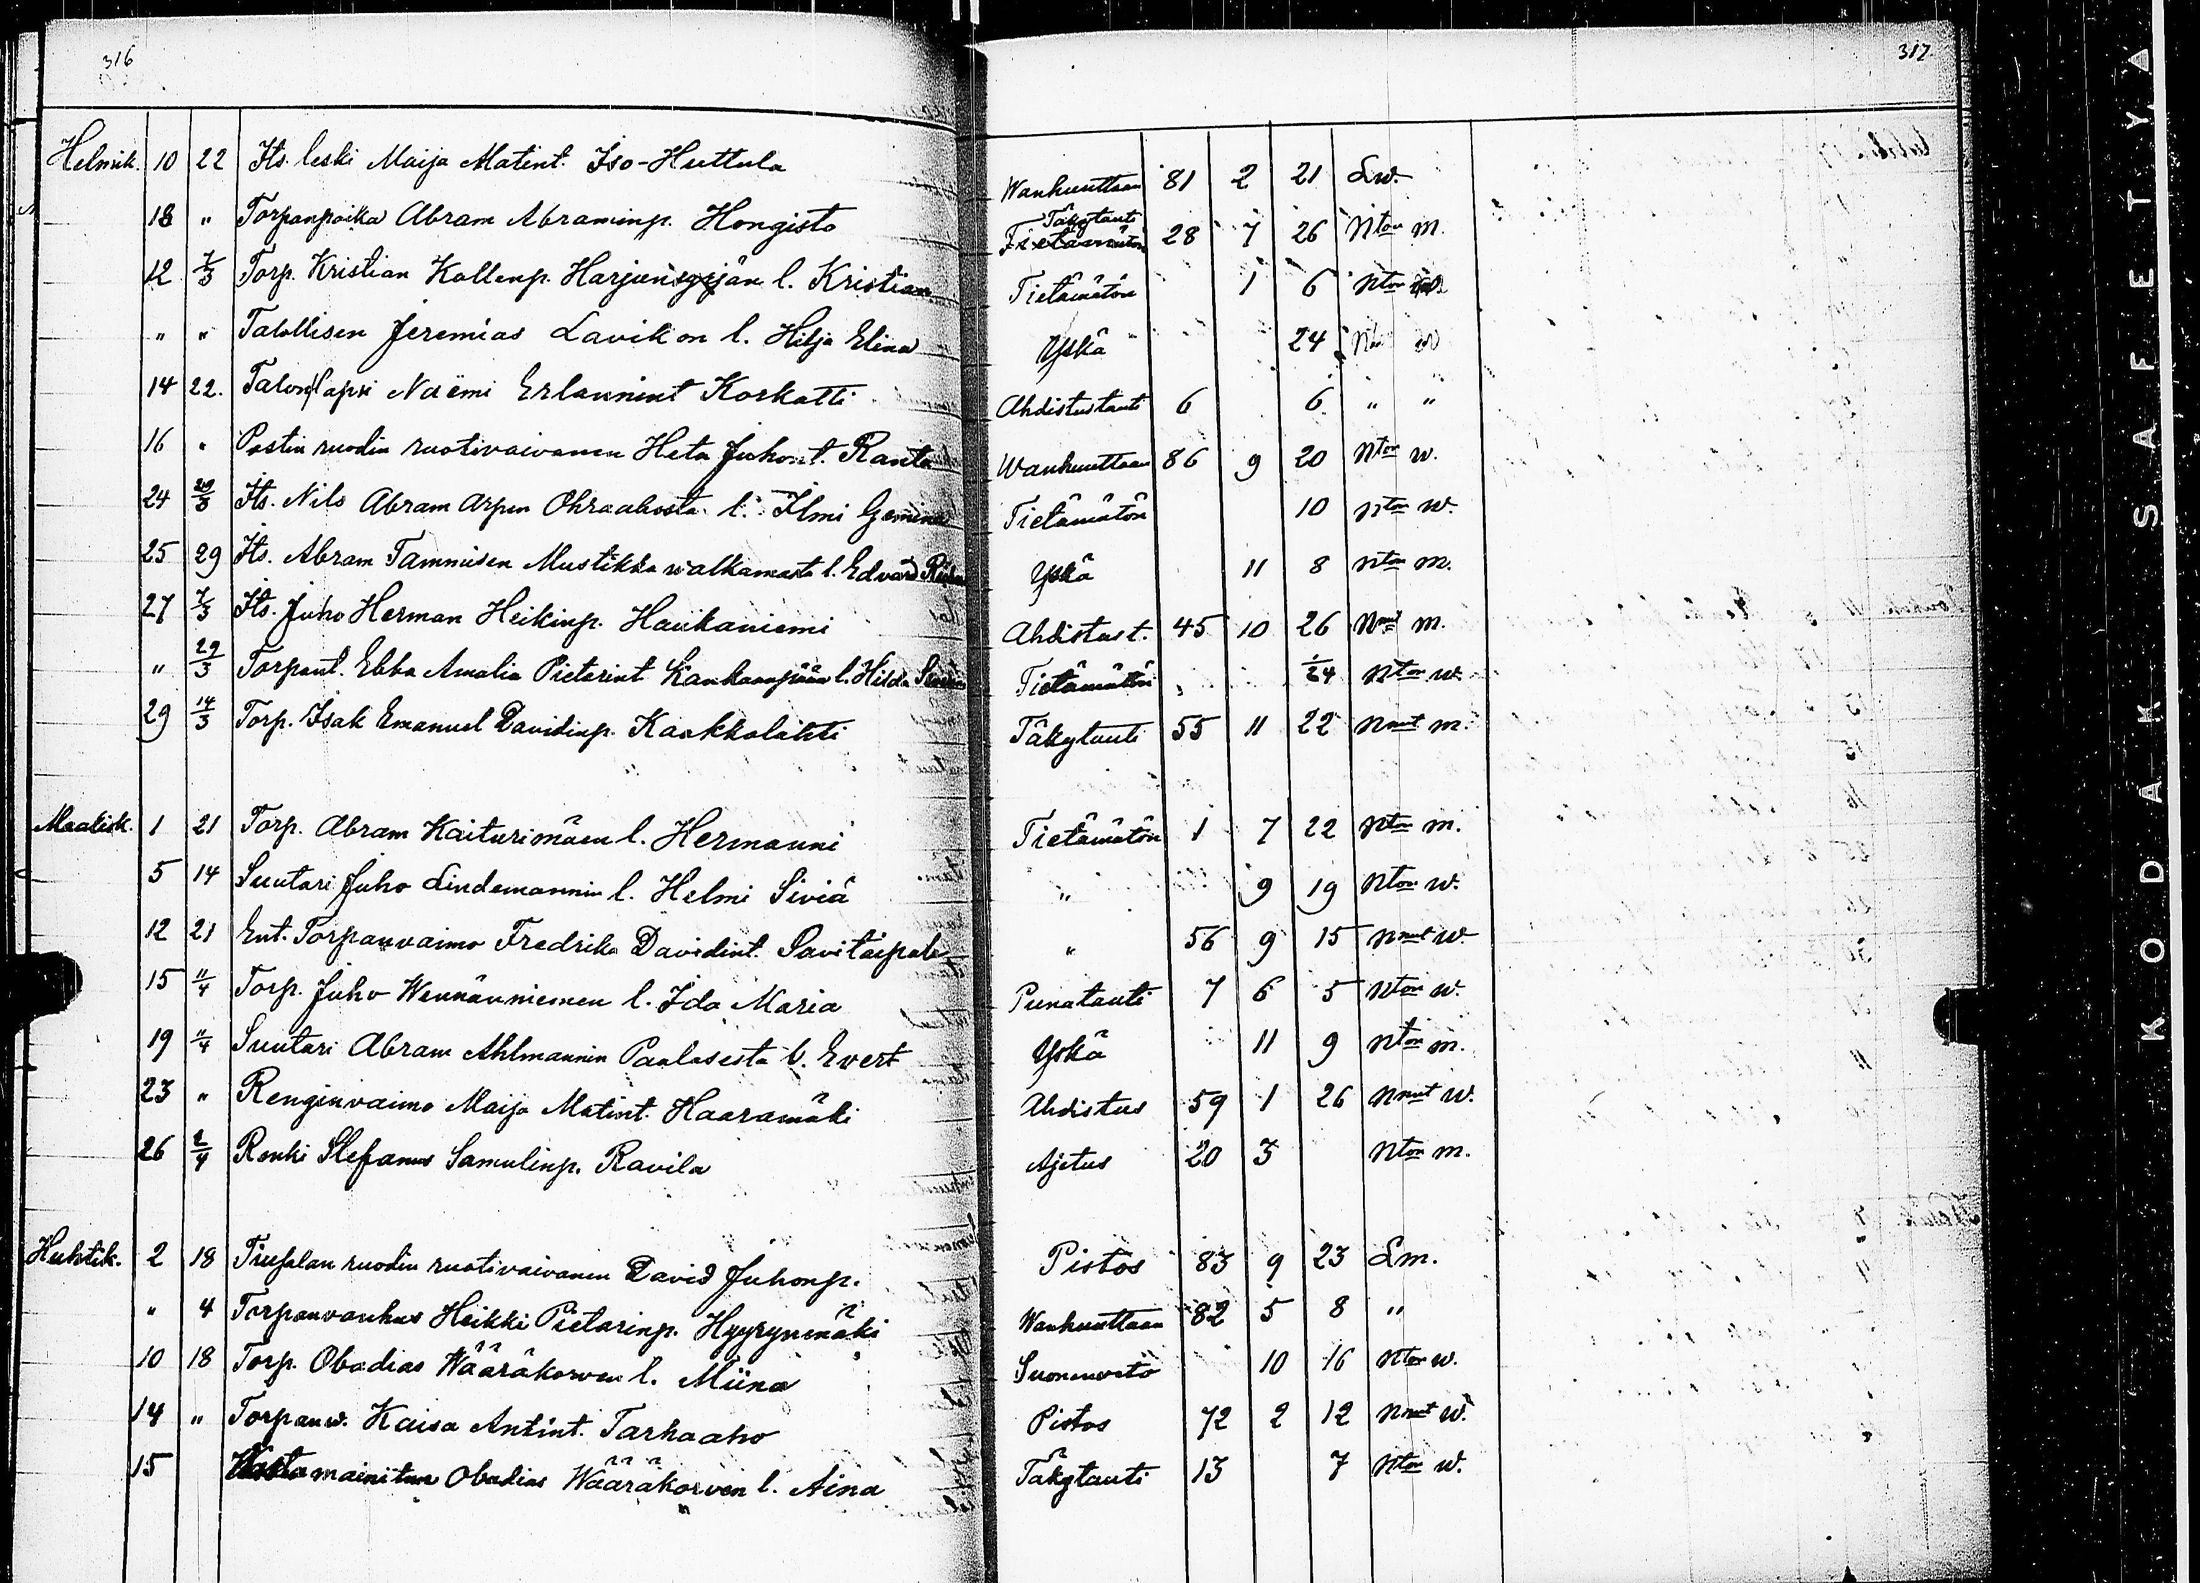 316
317
Helmik. 10 22 Its. leski Maija Matint. Iso-Huttula Wanhuuttaan 81 2 21 Lw.
18 " Torpanpoika Abram Abraminp. Hongisto Täkytauti Tietämätön 28 7 26 Nton m.
12 7/3 Torp. Kristian Kallenp. Harjunsyrjän l. Kristian Tietämätön 1 6 Nton
" " Talollisen Jeremias Lavikon l. Hilja Elina Yskä 24
14 22. Talon lapsi Naëmi Erlannint Korkatti Ahdistustauti 6 6 " "
16 " Postin ruodin ruotivaivanen Heta Juhont. Ranta Wanhuuttaan 86 9 20 Nton w.
24 29/3 Its. Nils Abram Arpen Ohraahosta l. Ilmi Gemina Tietämätön 10 Nton w.
25 29 Its. Abram Tammisen Mustikkawalkamasta l. Edvard Yskä 11 8 Nton m.
27 7/3 Its. Juho Herman Heikinp. Haukaniemi Ahdistus t. 45 10 26 Nmut m.
" 29/3 Torpant. Ebba Amalia Pietarint Kankaanpään l. Hilda Tietämätön 1/24 Nton w.
29 14/3 Torp. Isak Emanuel Davidinp. Kaakkolahti Täkytauti 55 11 22 Nmut m.
Maalisk. 1 21 Torp. Abram Kaiturimäen l. Hermanni Tietämätön 1 7 22 Nton m.
5 14 Suutari Juho Lindemannin l. Helmi Siviä " 9 19 Nton w.
12 21 Ent. Torpanvaimo Fredrika Davidint. Savitaipale " 56 9 15 Nmut w.
15 11/4 Torp. Juho Wennänniemen l. Ida Maria Punatauti 7 6 5 Nton w.
19 11/4 Suutari Abram Ahlmannin Paalasesta l. Evert Yskä 11 9 Nton m.
23 " Renginvaimo Maija Matint. Haaramäki Ahdistus 59 1 26 Nmut w.
26 2/4 Renki Stefanus Samulinp. Ravila Ajetus 20 3 Nton m.
Huhtik. 2 18 Tiufalan ruodin ruotivaivanen David Juhonp. Pistos 83 9 23 Lm.
" 4 Torpanvanhus Heikki Pietarinp. Hyyrynmäki Wanhuuttaan 82 5 8 "
10 18 Torp. Obadias Wääräkorven l. Miina Suonenveto 10 16 Nton w.
14 " Torpanw. Kaisa Antint. Tarhaaho Pistos 72 2 12 Nmut w.
15 mainitun Obadias Wääräkorven l. Aina Täkytauti 13 7 Nton w.
KODAK SAFETY A